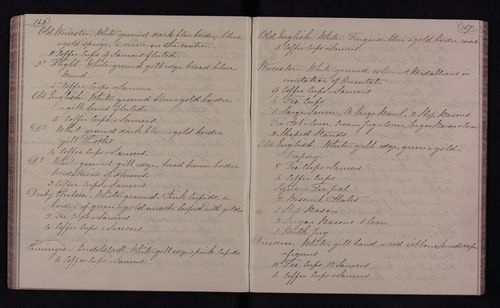 156
Old Worcester. White ground dark blue border, blue
& gold sprigs, & circle in the centre.
Coffee Cups & Saucers fluted.
Do Flight. White ground gilt edge broad blue
band
5 Coffee Cups & Saucers
Old English. White ground blue & gold border
with lines fluted
5 Coffee Cups & Saucers.
Do White ground dark blue & gold border
gilt Thistles
4 Coffee Cups & Saucers
Do White ground gilt edge, broad brown border
Medallions of
3 Coffee Cups & Saucers
Derby Chelsea. White ground Pink Cupids, a
border of green & gold wreaths looped with gold
2 Tea Cups & Saucers
4 Coffee Cups & Saucers
Thuringia. White gilt edge & pink Cupids
6 Coffee Cups & Saucers
157
Old English. White. Turquoise blue & gold border
Coffee Cups & Saucers
Worcester. White ground coloured Medallions in
imitation of Oriental
Coffee Cups & Saucers
5 Tea Cups
1 Large Saucer, a large Bowl, 2 Slop Basons
Tea Pot & Cover Cream Jug & cover Sugar Bason & cover
2 Shaped Stands
Old English. White, gilt edge, green & gold
Drapery
Tea Cups & Saucers
5 Coffee Cups
Square Tea pot
2 Dessert Plates
1 Slop Bason
2 Sugar Basons 1 Cover
1 Milk Jug
Dresden. White, gilt band & red ribbon Landscape
& figures
11 Tea Cups 12 Saucers
6 Coffee Cups & Saucers